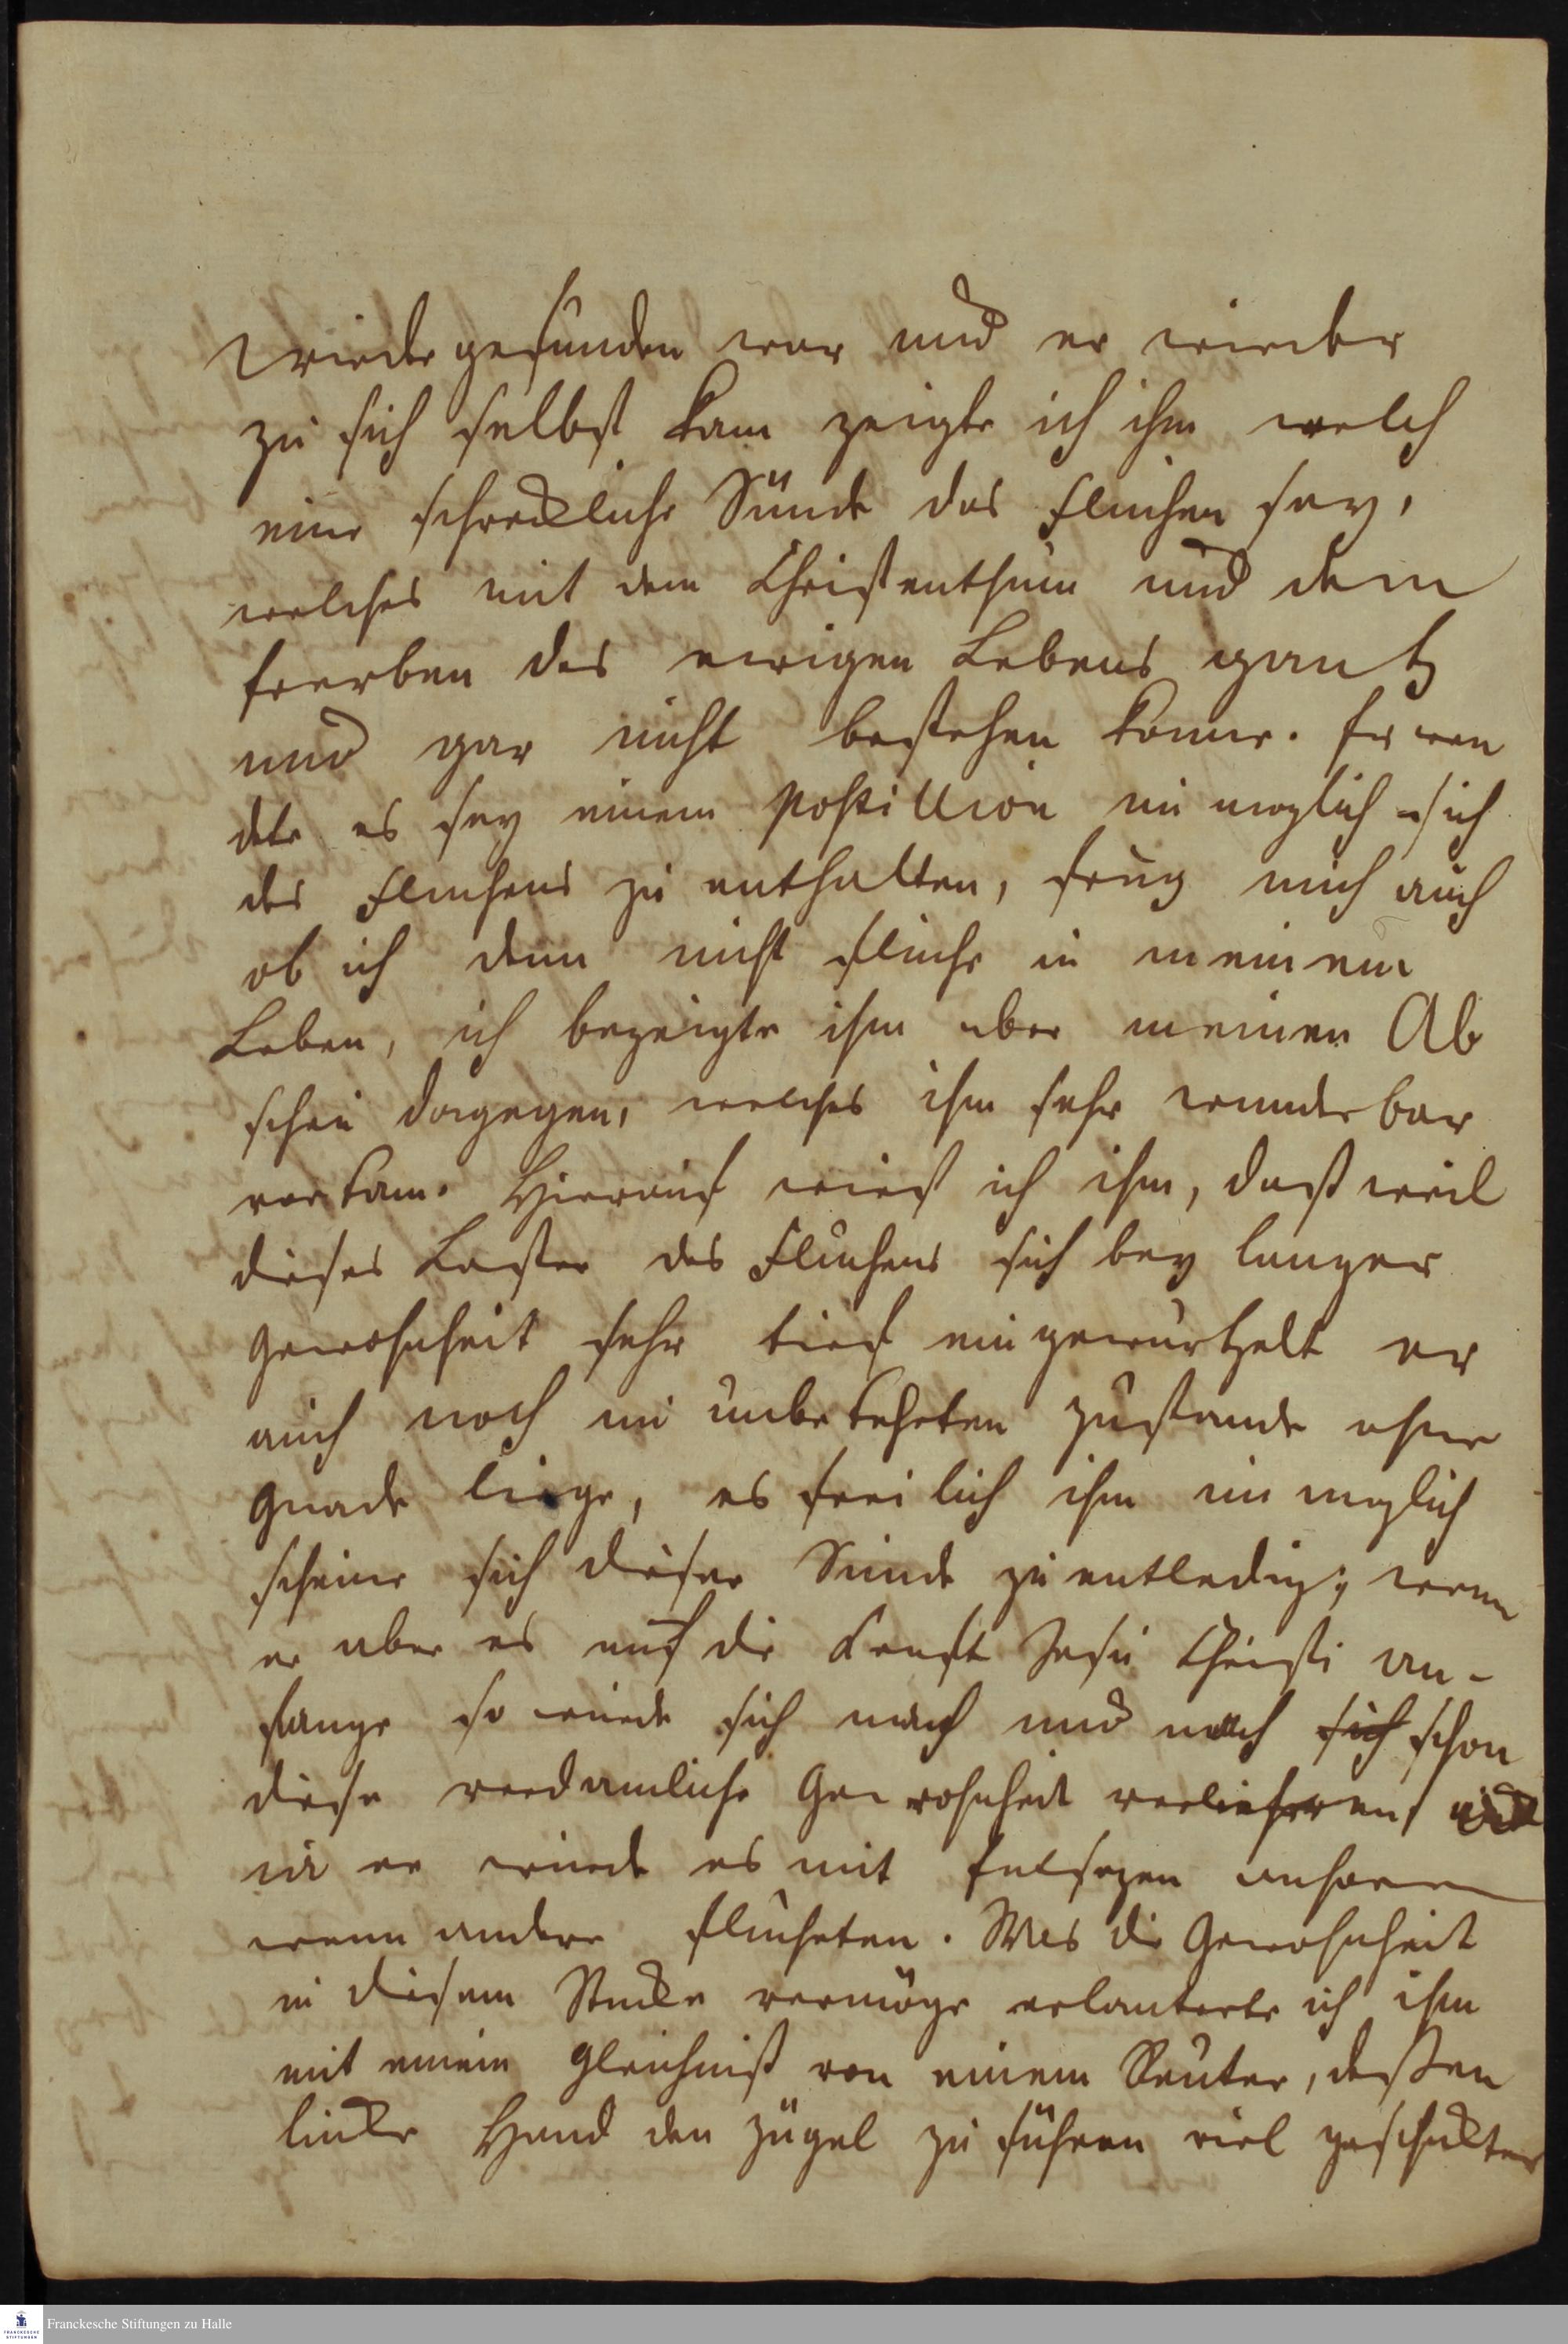 wieder gefunden war und er wieder
zu sich selbst kam zeigte ich ihm welch
eine schreckliche Sünde das Fluchen sey,
welches mit dem Christenthum und dem
Ererben des ewigen Lebens gantz
und gar nicht bestehen konne. Er wen
dete es sey einem Postillion unmoglich sich
des Fluchens zu enthalten, frug mich auch
ob ich denn nicht fluche in meinem
Leben, ich bezeigte ihm aber meinen Ab
scheu dagegen, welches ihm sehr wunderbar
vorkam. Hierauf wieß ich ihm, daß weil
dieses Laster des Fluchens sich bey langer
Gewohnheit sehr tief eingewurtzelt er
auch noch im unbekehrten Zustande ohne
Gnade liege, es freilich ihm unmoglich
scheine sich dieser Sunde zu entledig; wenn
er aber es auf die Krafft Jesu Christi an-
fange so wurde sich nach und nach sich schon
diese verdamliche Gewohnheit verliehren,
ia er wurde es mit Entsezen anhoren
wenn andere flucheten. Was die Gewohnheit
in diesem Stucke vermöge erlauterte ich ihm
mit einem Gleichniß von einem Reuter, deßen
lincke Hand den Zügel zu führen viel geschickter
Franckesche Stiftungen zu Halle